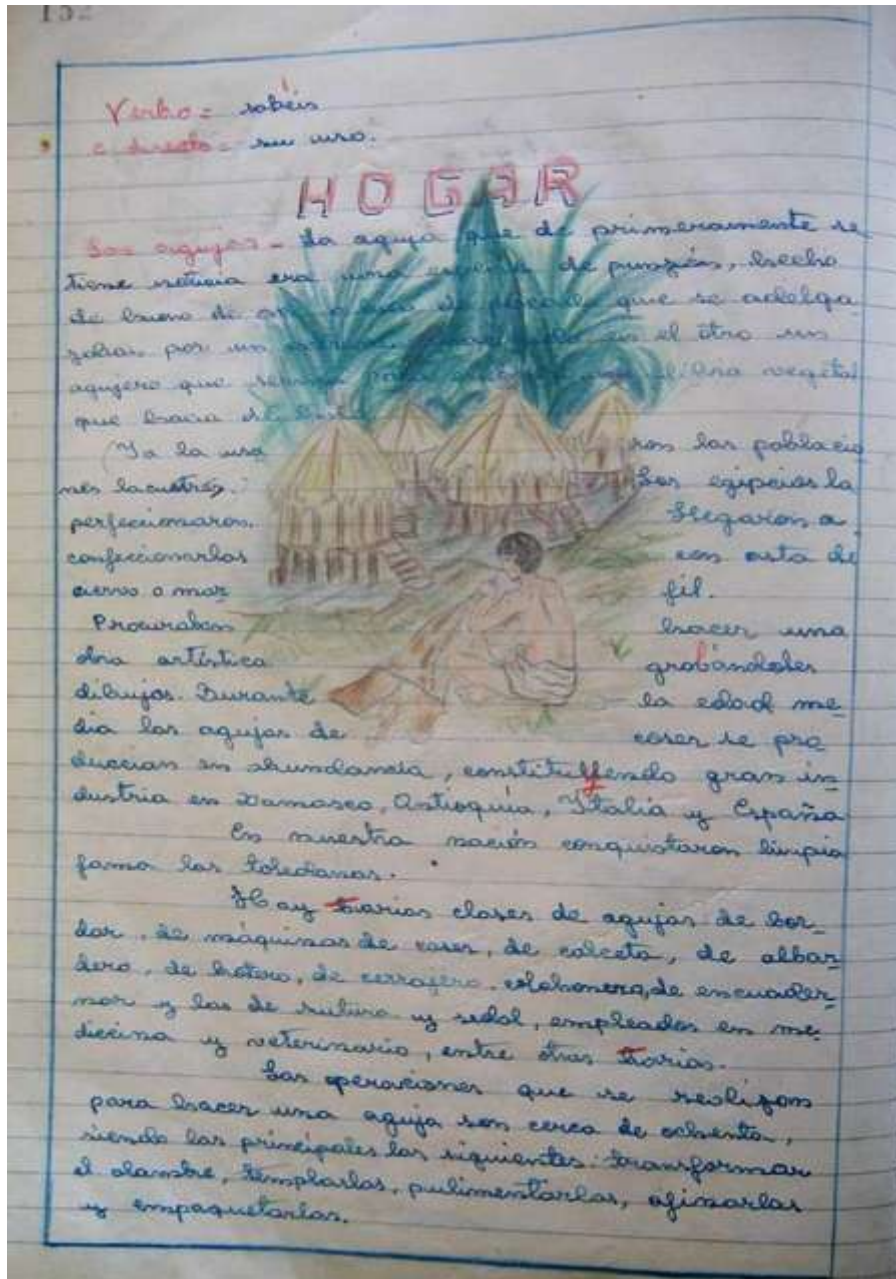 152
Verbo = sabéis
c. directo = su uso.
HOGAR
Las agujas - La aguja que de primeramente se
tiene noticia era una especie de punzón, hecho
de hueso de o de pescado que se adelga
zaban por un en el otro un
agujero que fibra vegetal
que hacia de
Ya la usa ron las poblacio
nes lacustres. Los egipcios la
perfeccionaron. Llegaron a
confeccionarlas con asta de
ciervo o mar fil.
Procuraban hacer una
obra artística grabándoles
dibujos. Durante la edad me
dia las agujas de coser se pro
duccian en abundancia, constituyendo gran in
dustria en Damasco, Antioquía, Italia y España
En nuestra nación conquistaron limpia
fama las toledanas.
Hay varias clases de agujas de bor
dar, de máquinas de coser, de calceta, de albar
dero, de botero, de cerrajero, de encuader
nar y las de sutura y sedal, empleadas en me
dicina y veterinario, entre otras varias.
Las operaciones que se realizan
para hacer una aguja son cerca de ochenta,
siendo las principales las siguientes: transformar
el alambre, templarlas, pulimentarlas, afinarlas
y empaquetarlas.